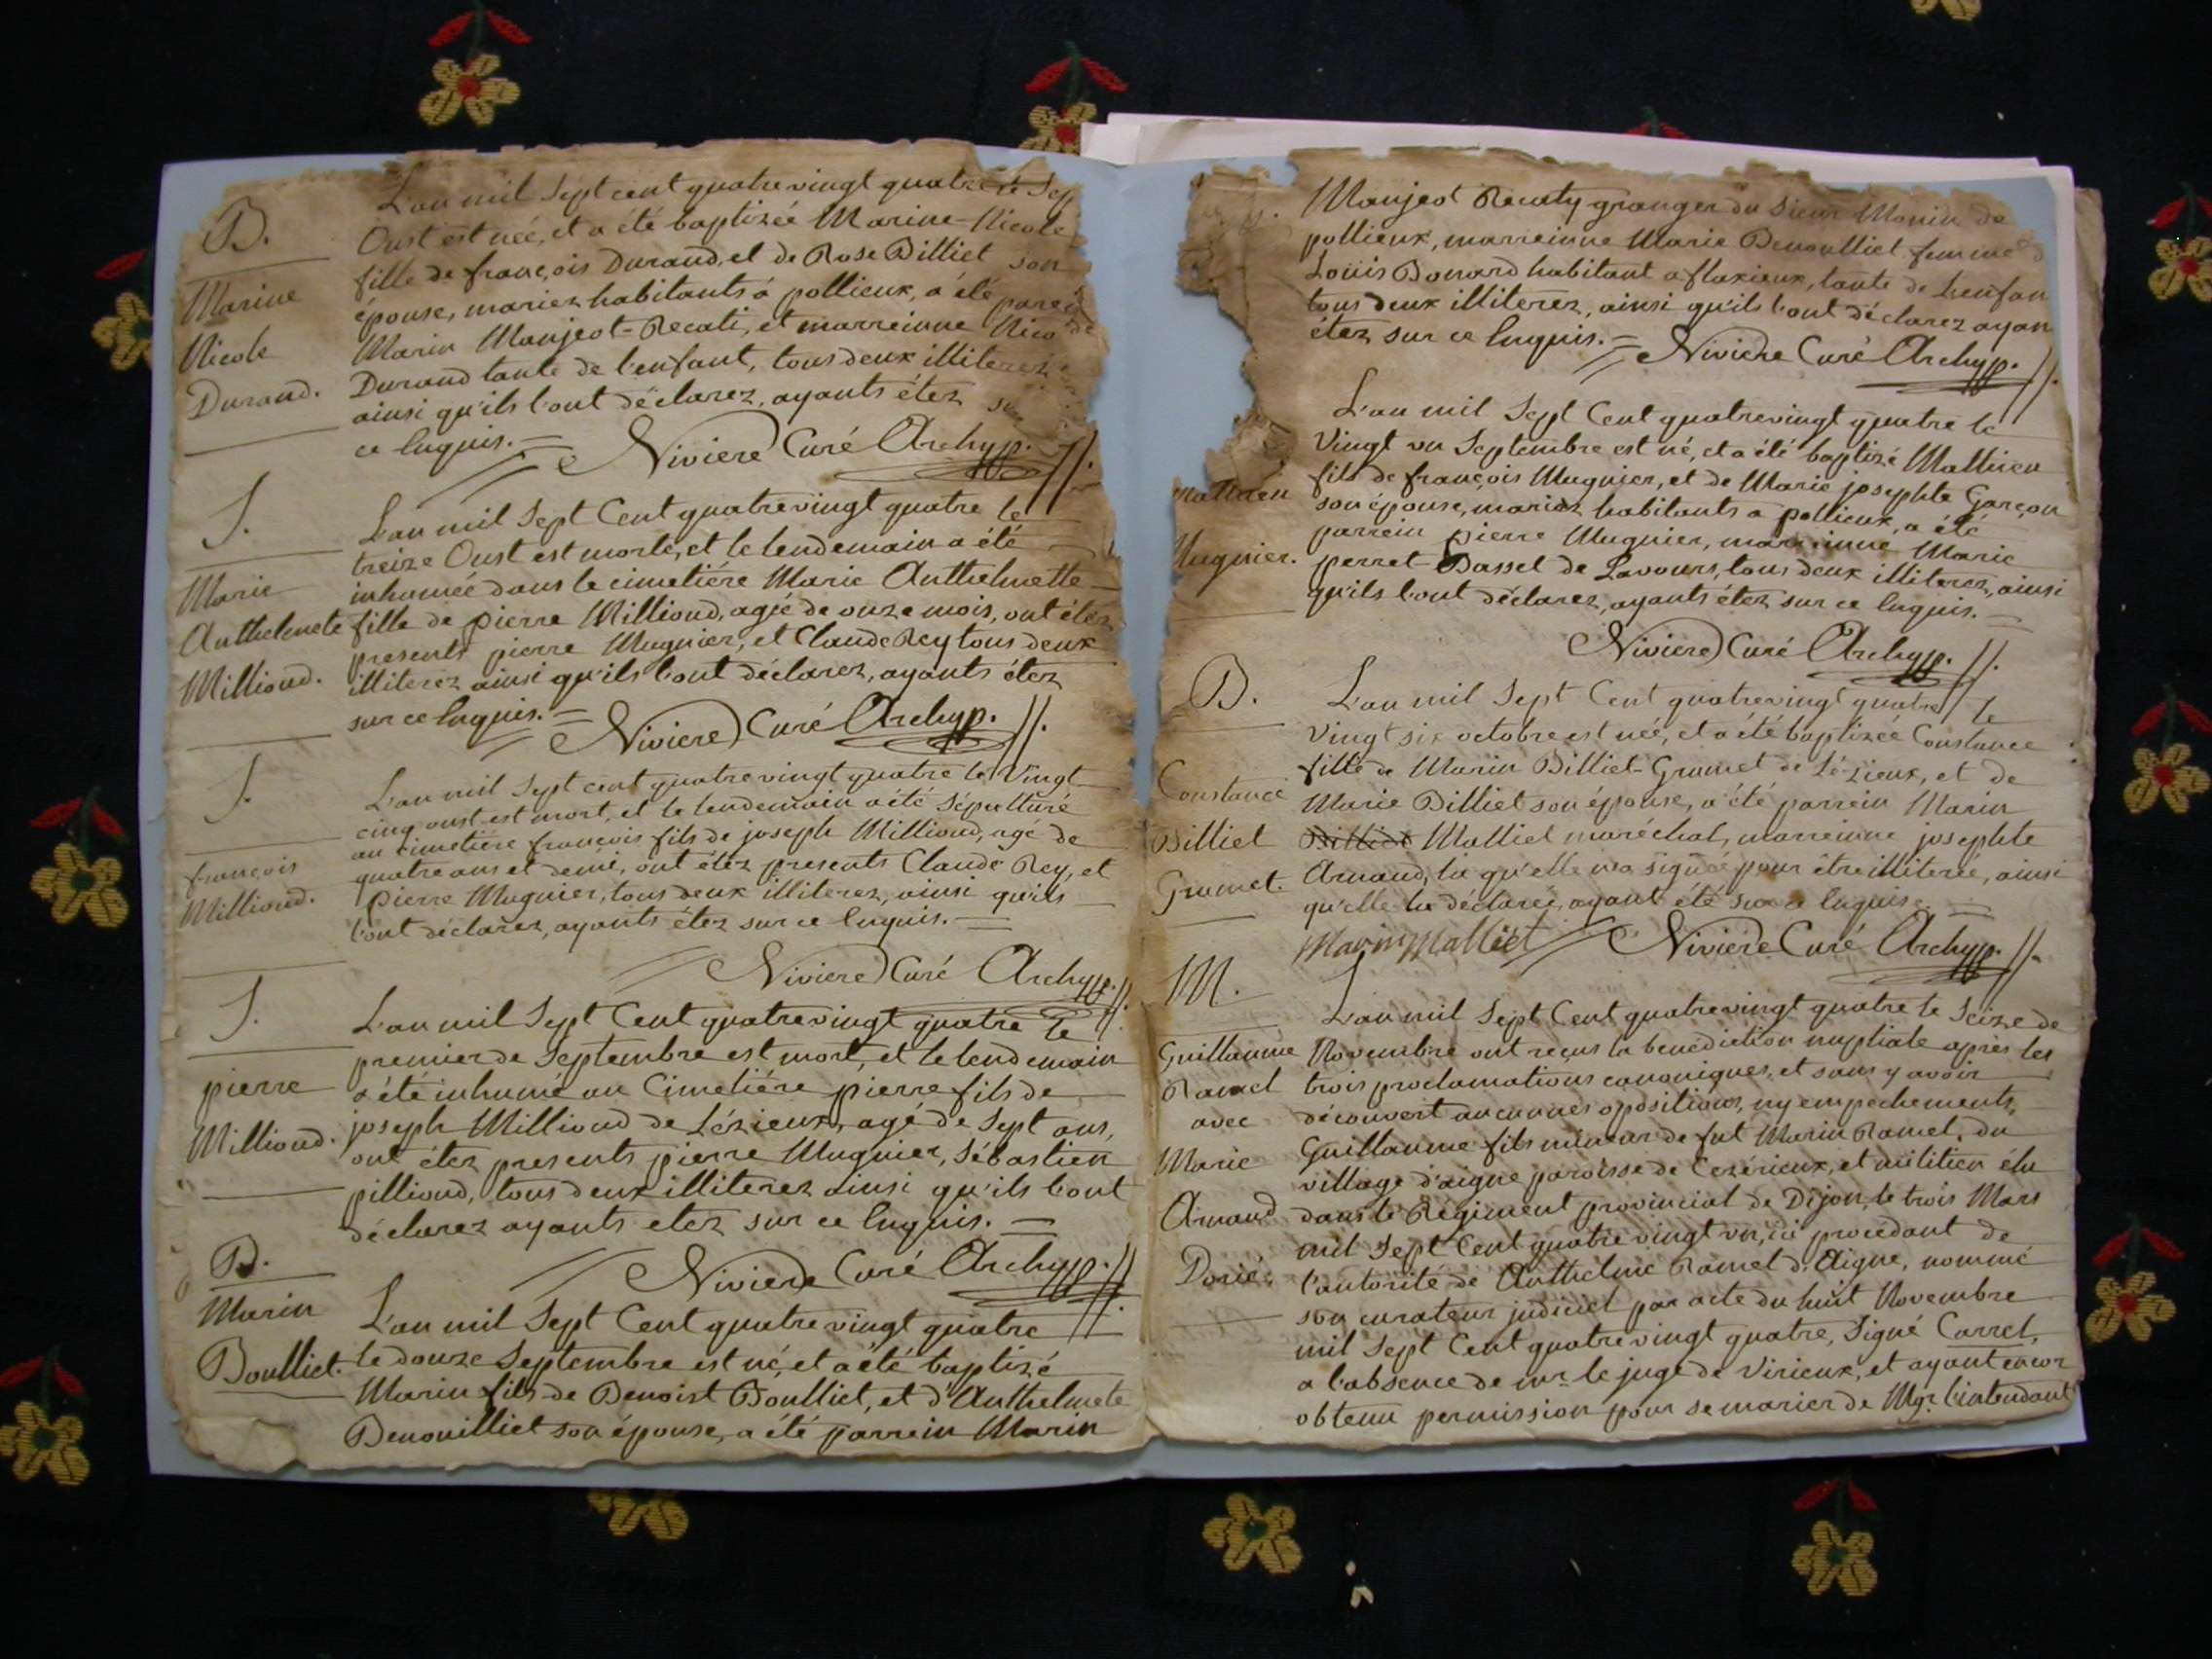 B.
Marine
Nicole
Durand.
L'an mil Sept cent quatre vingt quatre le Sep
Oust est née, et a été baptizée Marine-Nicole
fille de françois Durand, et de Rose Billiet son
épouse, mariez habitants à pollieux, a été parein
Marin Manjeot-Recati, et marreinne Nico
Durand tante de l'enfant, tous deux illiterez
ainsi qu'ils l'ont déclarez, ayants étez su
ce Enquis.=
Niviere Curé Archyp.
S.
Marie
Anthelmete
Milliond.
L'an mil Sept Cent quatre vingt quatre le
treize Oust est morte, et le lendemain a été
inhumée dans le cimetiére Marie Anthelmette
fille de pierre Milliond, agée de onze mois, ont étez
presents pierre Mugnier, et Claude Rey tous deux
illiterez ainsi qu'ils l'ont déclarez, ayants étez
sur ce Enquis.=
Niviere Curé Archyp.
S.
françois
Milliond.
L'an mil Sept cent quatre vingt quatre le Vingt
cinq oust est mort, et le lendemain a été Sépulturé
au cimetiére françois fils de joseph Milliond, agé de
quatre ans et demi, ont étez presents Claude Rey, et
Pierre Mugnier, tous deux illiterez, ainsi qu'ils
l'ont déclarez, ayants étez sur ce Enquis.=
Niviere Curé Archyp.
S.
pierre
Milliond.
L'an mil Sept Cent quatre vingt quatre le
premier de Septembre est mort, et le lendemain
a été inhumé au Cimetiére pierre fils de
joseph Milliond de Lézieux, agé de Sept ans,
ont étez presents pierre Mugnier, Sébastien
pilliond, tous deux illiterez ainsi qu'ils l'ont
déclarez ayants etez sur ce Enquis.=
Niviere Curé Archyp.
B.
Marin
Boulliet.
L'an mil Sept Cent quatre vingt quatre
le douze Septembre est né, et a été baptizé
Marin fils de Benoist Boulliet, et d'Anthelmete
Benouilliet son épouse, a été parrein Marin
Manjeot Recaty granger du Sieur Monin de
pollieux, marreinne Marie Benoulliet femme d
Loüis Bonard habitant a flaxieux, tante de L'enfan
tous deux illiterez, ainsi qu'ils l'ont déclarez ayan
étez sur ce Enquis.=
Niviere Curé Archyp.
Mathieu
Mugnier.
L'an mil Sept Cent quatre vingt quatre le
Vingt un Septembre est né, et a été baptizé Mathieu
fils de françois Mugnier, et de Marie josephte Garçon
son épouse, mariez habitants a pollieux, a été
parrein pierre Mugnier, marreinne Marie
perret-Bassel de Lavours, tous deux illiterez, ainsi
qu'ils l'ont déclarez, ayants étez sur ce Enquis.=
Niviere Curé Archyp.
B.
Constance
Billiet
Gromet.
L'an mil Sept Cent quatre vingt quatre le
Vingt six octobre est née, et a été baptizée Constance
fille de Marin Billiet-Gromet de Lézieux, et de
Marie Billiet son épouse, a été parrein Marin
Billiet Malliet maréchal, marreinne josephte
Arnaud, qu'elle signée pour être illiterée, ainsi
qu'elle la déclarée, ayant été sur ce Enquise.=
Marin Malliet
Niviere Curé Archyp.
M.
Guillaume
Ramel
avec
Marie
Arnaud
Dorié.
L'an mil Sept Cent quatre vingt quatre le Seize de
Novembre ont reçus la benediction nuptiale après les
trois proclamations canoniques, et sans y avoir
découvert aucunnes opositions, ny empechements,
Guillaume fils mineur de fut Marin Ramel, du
village d'aigne paroisse de Cezérieux, et militien élu
dans le Régiment provincial de Dijon, le trois Mars
mil Sept Cent quatre vingt un, ici procédant de
l'autorité de Anthelme Ramel d'Aigne, nommé
son curateur judiciel par acte du huit Novembre
mil Sept Cent quatre vingt quatre, Signé Carrel,
a l'absence de mr le juge de Virieux, et ayant encor
obtenu permission pour se marier de Mgr. l'intendant